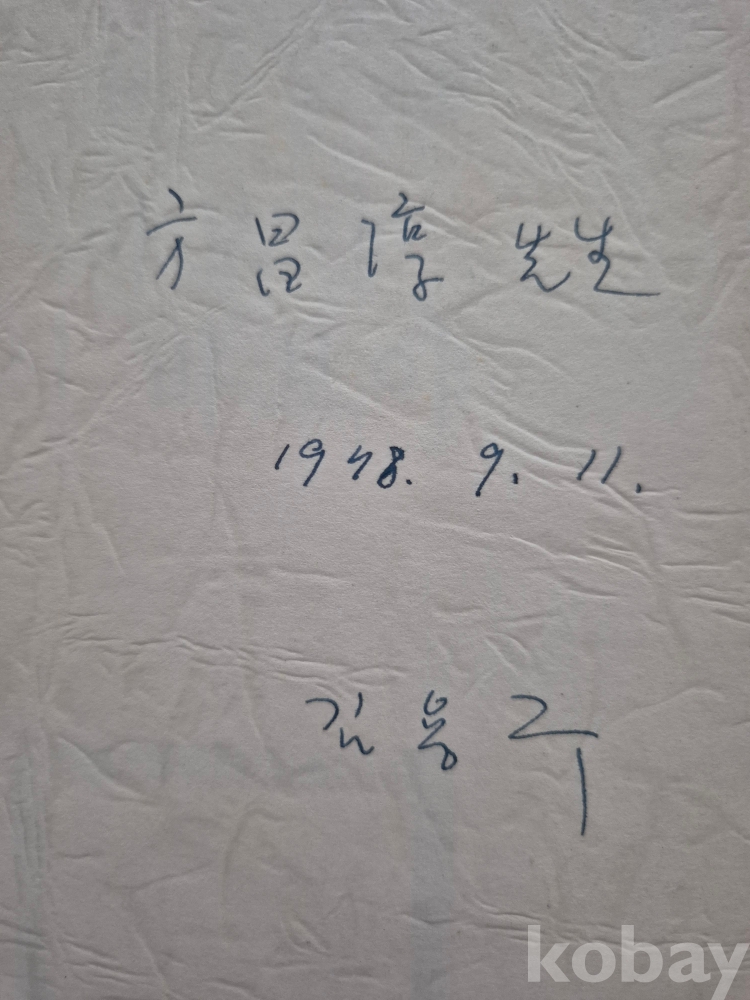 方昌淳 先生
1978. 9. 11.
김용구
kobay